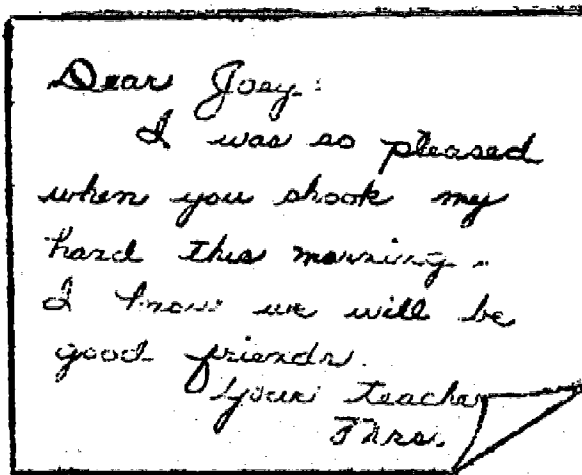 Dear Joey:
I was so pleased
when you shook my
hand this morning.
I know we will be
good friends.
Your teacher
Mrs.